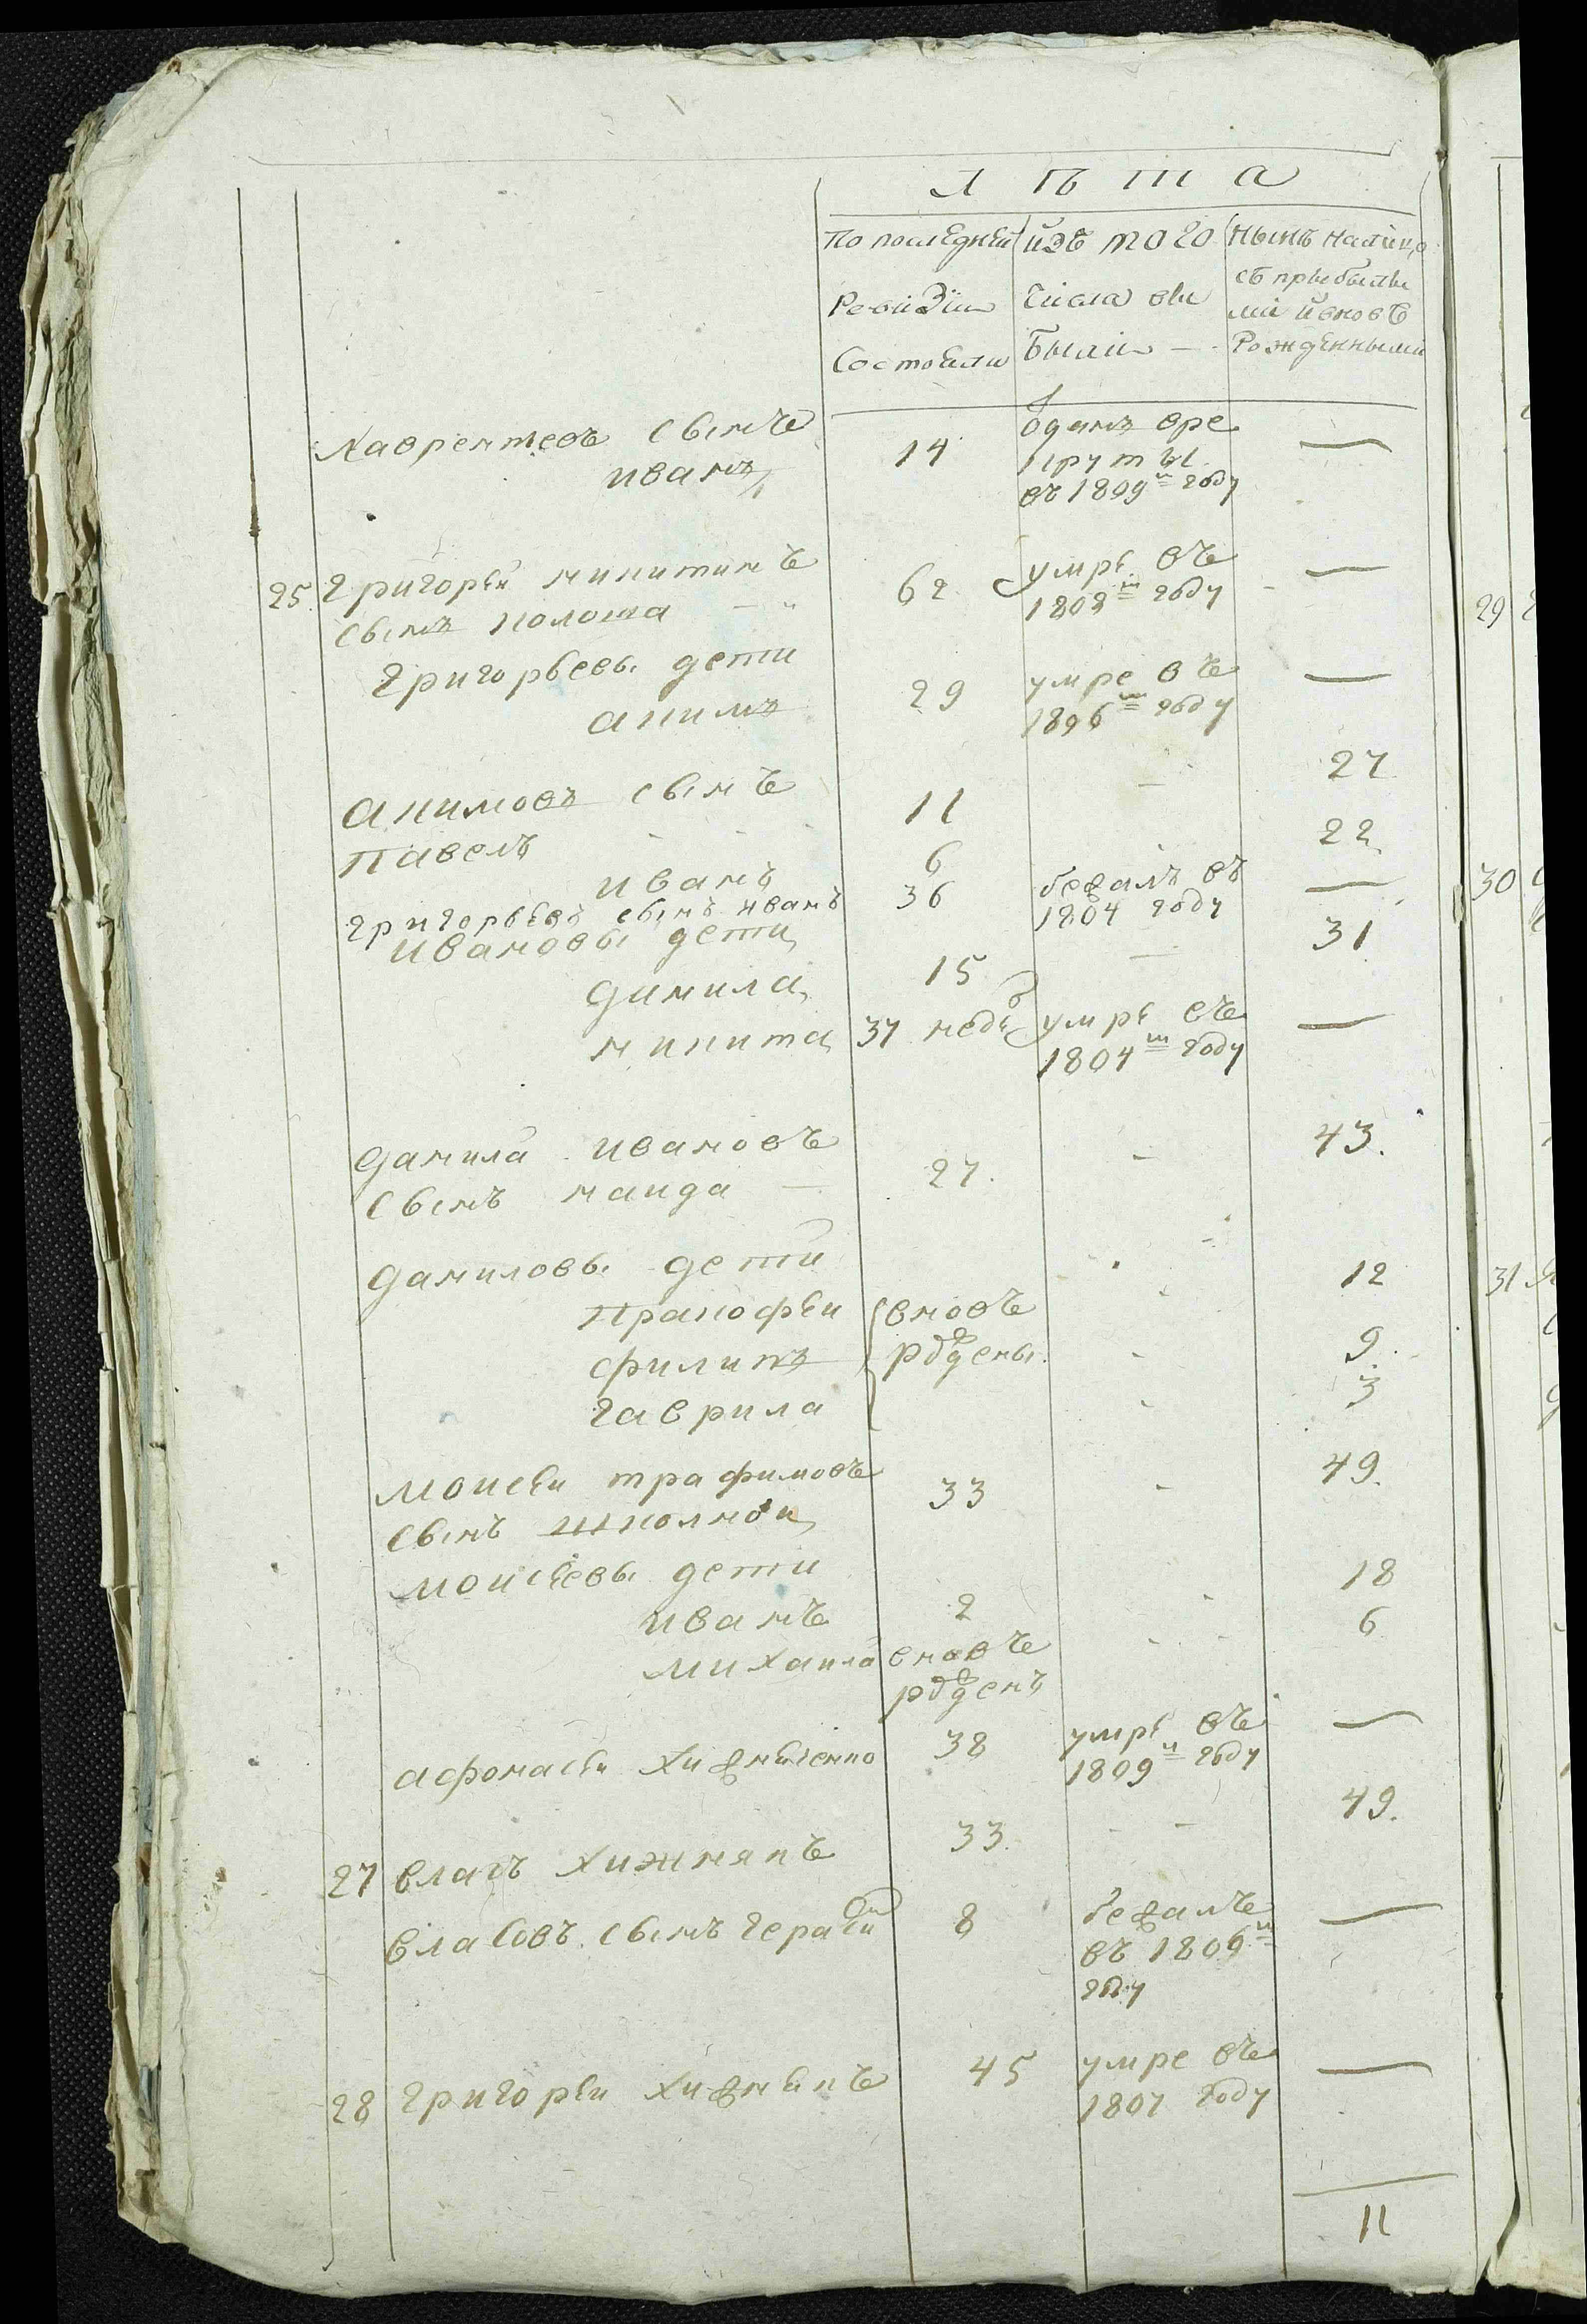 Лѣта
По последней
Ревизии
Состояли
изъ того
числа вы
были —
Нынѣ налицо
съ прибылы
ми и вновь
Рожденными
Лаврентьевъ сынъ
иванъ
14
Отданъ вре
круты
въ 1809м году
—
25 григорей никитинъ
сынъ колоша
62
умре въ
1808м году
—
григорьевы дети
акимъ
29
умре въ
1806м году
—
акимовъ сынъ
павелъ
11
27
иванъ
6
22
григорьевъ сынъ иванъ
36
бежалъ въ
1804 году
—
ивановы дети
данила
15
31
никита
37 недѣ
умре въ
1804м году
—
данила ивановъ
сынъ наида —
27
43.
даниловы дети
пракофеи
филипъ
гаврила
вновь
рождены
12
9
3
моисеи трафимовъ
сынъ школнои
33
49.
моисеевы дети
иванъ
2
18
михаила
вновь
рожденъ
6
афонасеи хижниченко
38
умре въ
1809м году
—
27 власъ хижнякъ
33
49.
власовъ сынъ герасим
8
бежалъ
въ 1806м
году
—
28 григореи хижнякъ
45
умре въ
1807 году
—
11
29
30
31